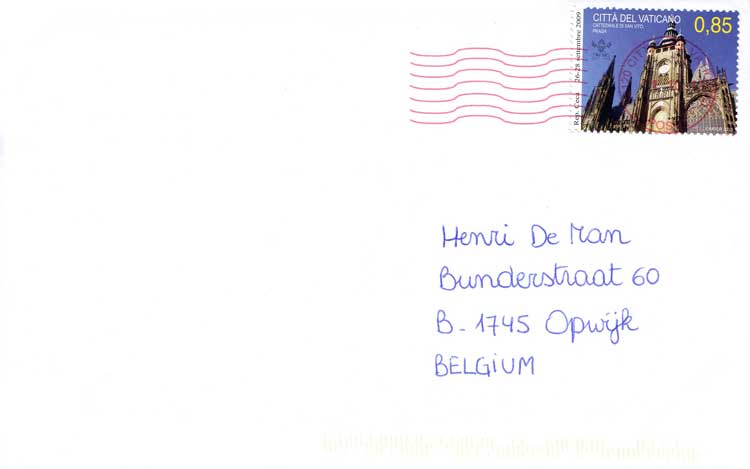 CITTÀ DEL VATICANO 0,85
CATTEDRALE DI SAN VITO,
PRAGA
Rep. Ceca 26-28 settembre 2009
Henri De Man
Bunderstraat 60
B - 1745 Opwijk
BELGIUM